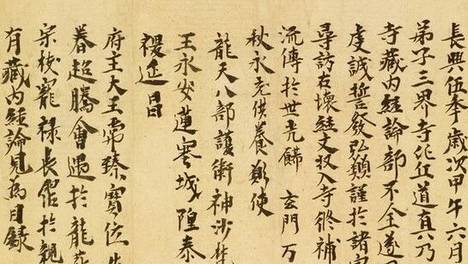 長興伍年歲次甲午六月
弟子三界寺比丘道真乃
寺藏內經論部不全遂
虔誠誓發弘願謹於諸
尋訪古壞經文收入寺修補
流傳於世光飾 玄門万
秋永充供養願使
龍天八部護衛神沙梵
王永安蓮塞城隍泰
稷延昌
府主大王常臻寶位先
眷超騰會遇於龍花
宗枝寵祿長霑於親
有藏內經論見為目錄